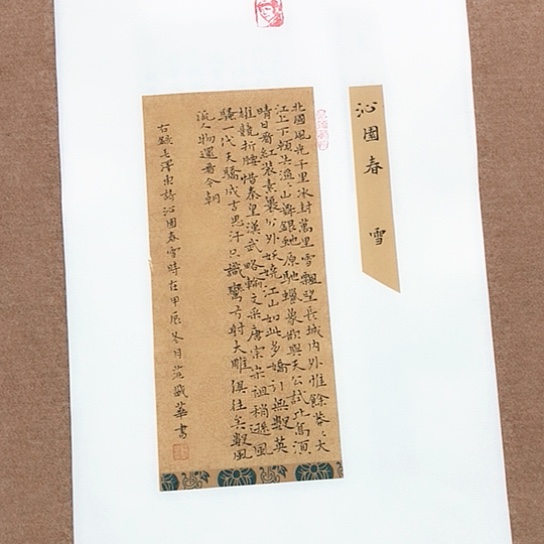 沁園春 雪
北國風光千里冰封萬里雪飄望長城内外惟餘莽〻大
江上下頓失滔〻山舞銀蛇原馳蠟象欲與天公試比高須
晴日看紅裝素裹分外妖嬈江山如此多嬌引無數英
雄競折腰惜秦皇漢武略輸文采唐宗宋祖稍遜風
騷一代天驕成吉思汗只識彎弓射大雕俱往矣數風
流人物還看今朝
右錄毛澤東詩沁園春雪時在甲辰冬月華書